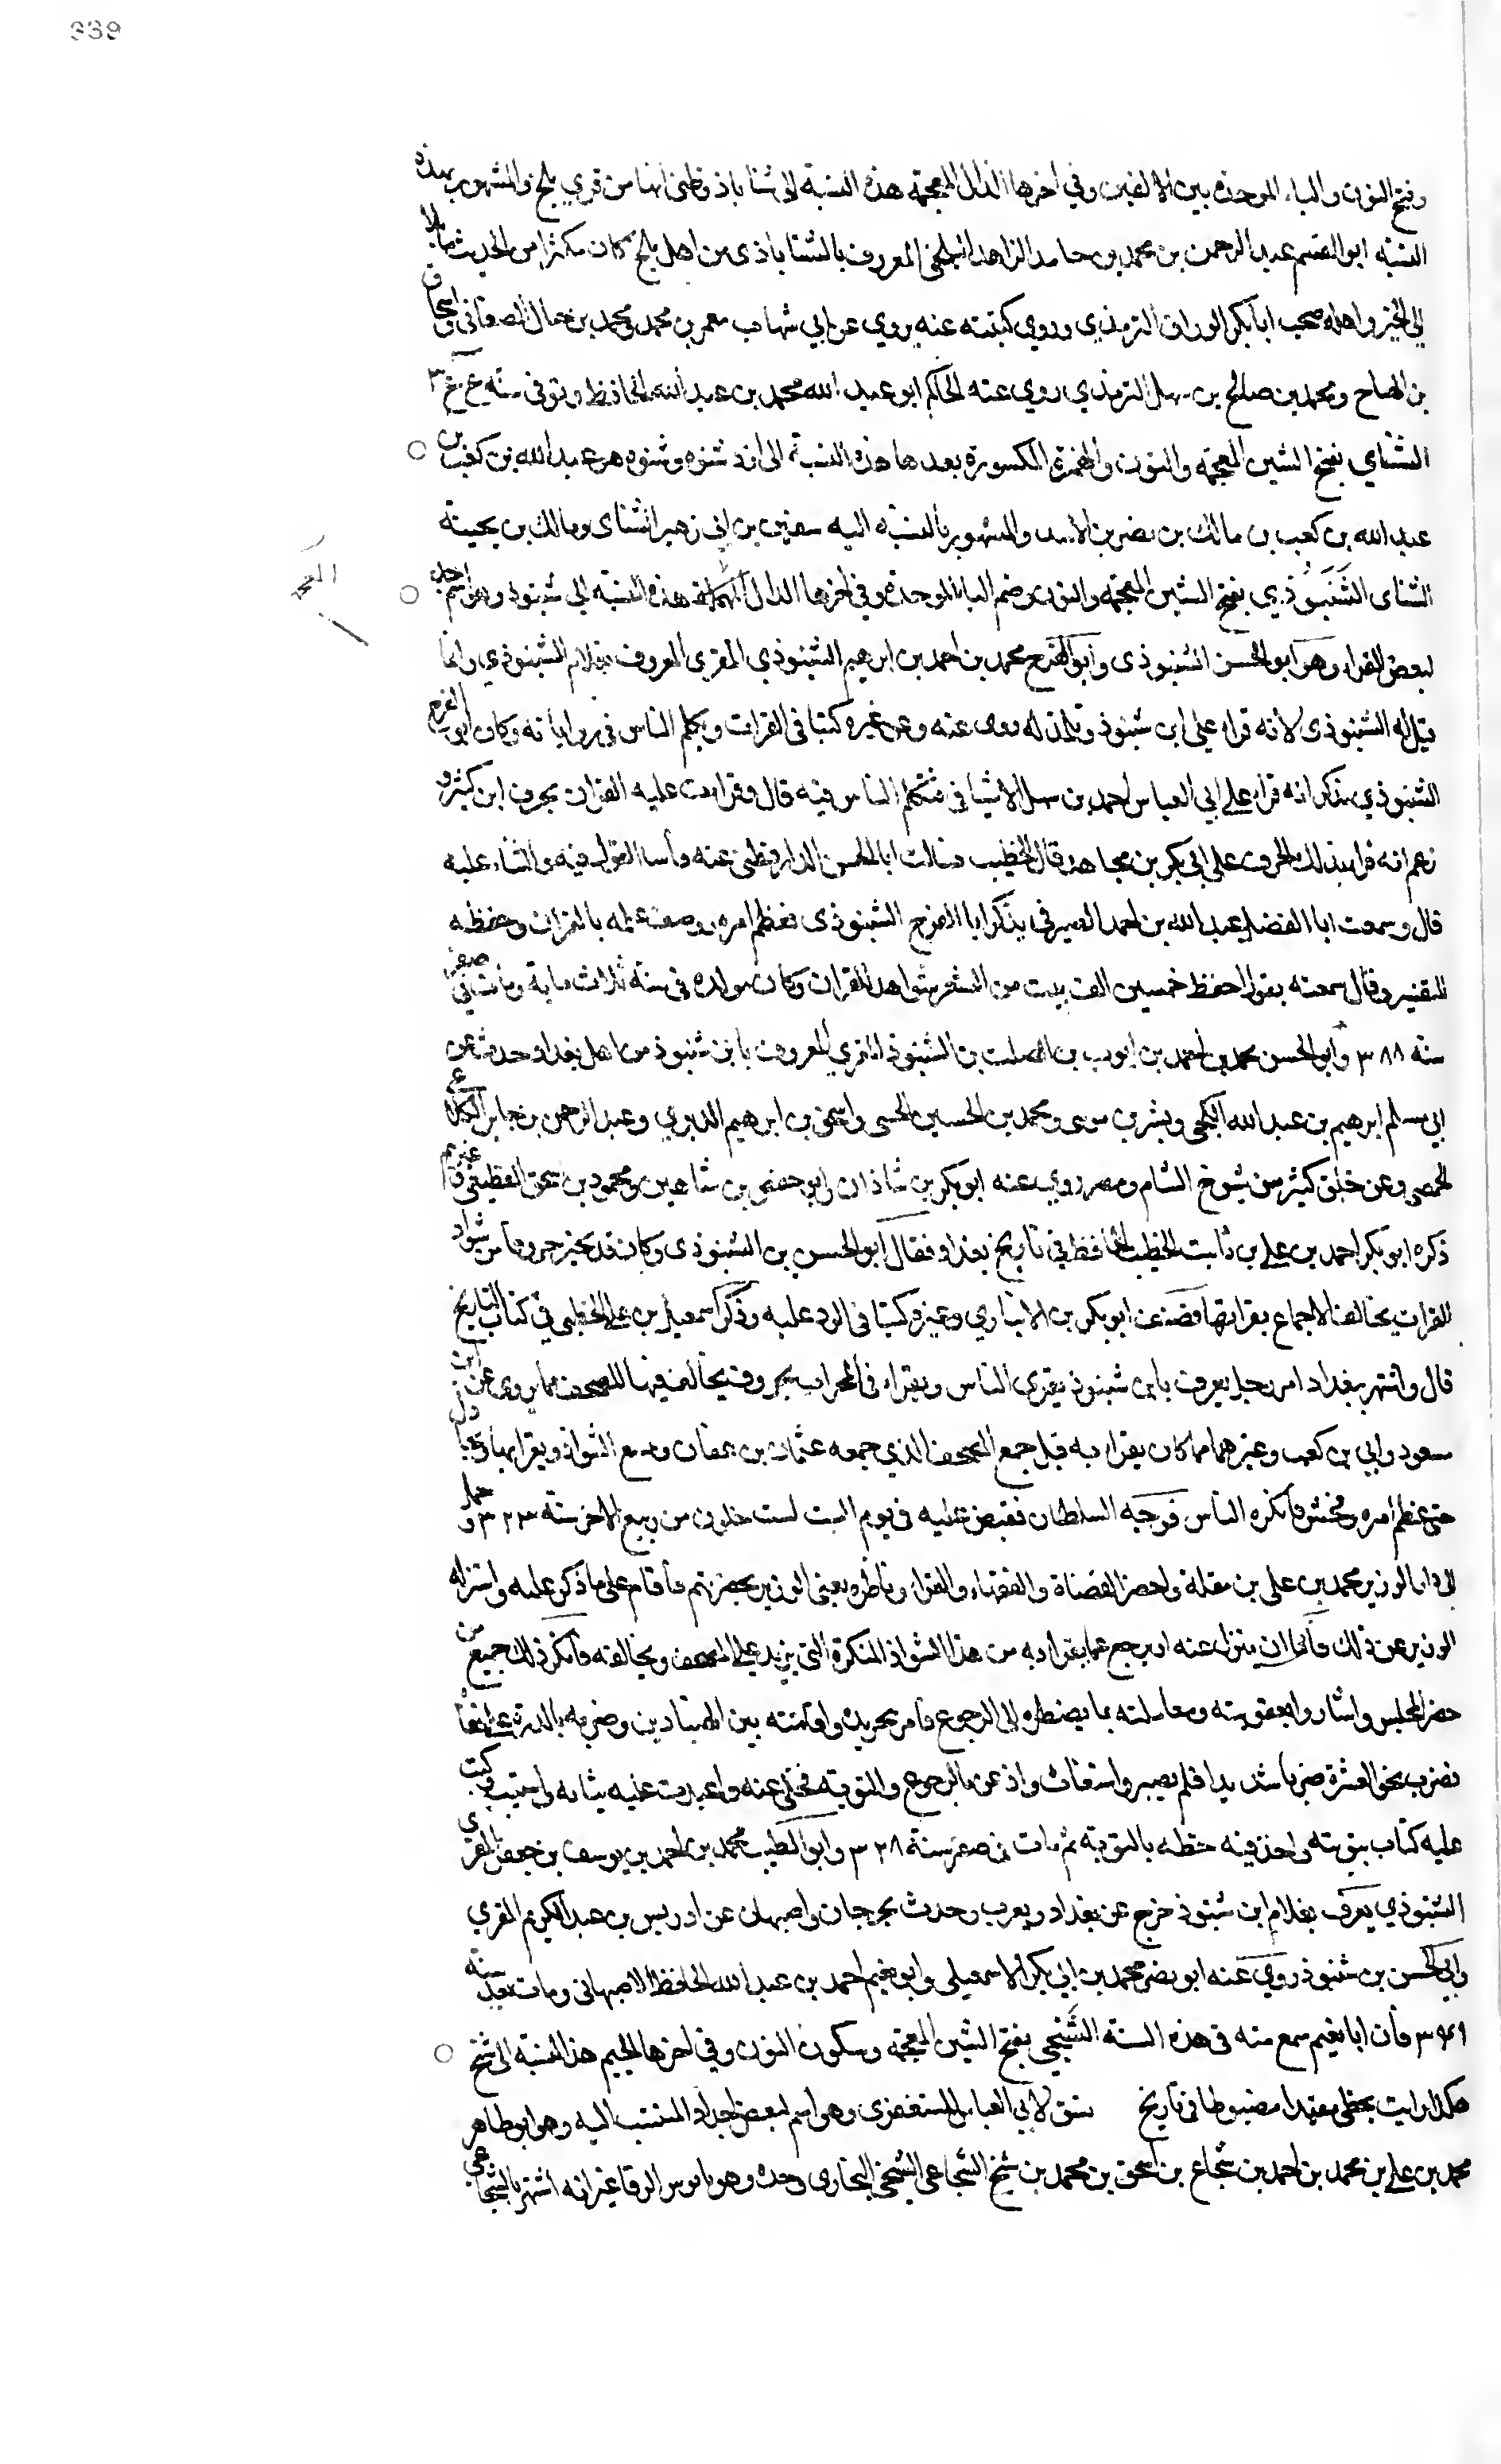 339
وفتح النون والباء الموحدة بين الالفين وفي اخرها الذال المعجمة هذه النسبة الى شناباذ وظني انها من قرى بلخ والمشهور بهذه
النسبة ابو القسم عبد الرحمن بن محمد بن حامد الزاهد البلخي المعروف بالشناباذى من اهل بلخ كان مكثرا من الحديث مايلا
الى الخير واهله صحب ابا بكر الوراق الترمذي وروى كتبه عنه يروي عن ابي شهاب معمر بن محمد ومحمد بن حمال الصغاني واسحاق
بن الهياج ومحمد بن صالح بن سهل الترمذي روى عنه الحاكم ابو عبد الله محمد بن عبد الله الحافظ وتوفى سنة
الشنائي بفتح الشين المعجمة والنون والهمزة المكسورة بعدها هذه النسبة الى ازد شنوه وشنوه هو عبد الله بن كعب بن
عبد الله بن كعب بن مالك بن نضر بن الاسد والمشهور بالنسبة اليه سفين بن ابي زهير الشناى ومالك بن بحينة
الشناى الشَنَبُوذي بفتح الشين المعجمة والنون وضم الباء الموحدة وفي اخرها الدال المهملة هذه النسبة الى شنبوذ وهو اسم احد
لبعض القراء وهو ابو الحسن الشنبوذى وابو الفرج محمد بن احمد بن ابرهيم الشنبوذي المقري المعروف بغلام الشنبوذي وانما
قيل له الشنبوذى لانه قراء على ابن شنبوذ وتلمذ له روى عنه وعن غيره كتبا في القرات وتكلم الناس في رواياته وكان ابو الفرج
الشنبوذي يذكر انه قراء على ابي العباس احمد بن سهل الاشناني فتكلم الناس فيه قال وقرات عليه القران بحرف ابن كثير و
زعم انه قرا بذلك الحرف على ابي بكر بن مجاهد قال الخطيب وسالت ابا الحسن الدارقطنى عنه فأسا القول فيه والثناء عليه
قال وسمعت ابا الفضل عبيد الله بن احمد الصيرفي يذكر ابا الفرج الشنبوذى فعظم امره ووصف علمه بالقران وحفظه
للتفسير وقال سمعته يقول احفظ خمسين الف بيت من الشعر شواهد للقران وكان مولده في سنة ثلاث ماية ومات في صفر
سنة ٣٨٨ وابو الحسن محمد بن احمد بن ايوب بن الصلت بن الشنبوذ المقري المعروف بابن شنبوذ من اهل بغداد حدث عن
ابي مسلم ابرهيم بن عبد الله الكجى وبشر بن موسى ومحمد بن الحسين الحسى واسحق بن ابرهيم الدبري وعبد الرحمن بن جابر الكلاعي
الحمصي وعن خلق كثير من شيوخ الشام ومصر روى عنه ابو بكر بن شاذان وابو حفص بن شاهين ومحمود بن اسحق القطيفى وغيرهم
ذكره ابو بكر احمد بن على بن ثابت الخطيب الحافظ في تاريخ بغداد فقال ابو الحسن بن الشنبوذى وكان قد تخير حروفا من شواذ
القرات يخالف الاجماع بقراتها فصنف ابو بكر بن الانباري وغيره كتبا في الرد عليه وذكر اسمعيل بن على الخطبى في كتاب التاريخ
قال واشتهر ببغداد امر رجل يعرف بابن شنبوذ يقرى الناس ويقراء في المحراب بحروف يخالف فيها المصحف مما يروى عن ابن
مسعود وابي بن كعب وغيرهما مما كان يقراء به قبل جمع المصحف الذي جمعه عثمان بن عفان وتتبع الشواذ ويقرا بها ويجادل
حتى عظم امره وفحش فانكره الناس فوجه السلطان فقبض عليه في يوم السبت لست خلون من ربيع الاخر سنة ٣٢٣ وحمل
الى دار الوزير محمد بن على بن مقلة واحضر القضاة والفقهاء والقراء وناظره يعني الوزير بحضرتهم فاقام على ما ذكر عليه واستنزله
الوزير عن ذلك فأبى ان ينزل عنه او يرجع عما يقرا به من هذا الشواذ المنكرة التى يزيد على المصحف ويخالفه فانكر ذلك جميع من
حضر المجلس واشاروا بعقوبته ومعاملته بما يضطره الى الرجوع فامر بتجريده واقامته بين الهنبازين وضربه بالدرة على قفاه
فضرب نحو العشرة ضربا شديدا فلم يصبر واستغاث واذعن بالرجوع والتوبة فخلى عنه واعيدت عليه ثيابه واستتيب وكتب
عليه كتاب بتوبته واخذ فيه خطه بالتوبة ثم مات في صفر سنة ٣٢٨ وابو الطيب محمد بن احمد بن يوسف بن جعفر المقرى
الشنبوذي يعرف بغلام ابن شنبوذ خرج عن بغداد وتغرب وحدث بجرجان واصبهان عن ادريس بن عبد الكريم المقري
وابي الحسن بن شنبوذ روى عنه ابو نصر محمد بن ابي بكر الاسمعيلى وابو نعيم احمد بن عبد الله الحافظ الاصبهاني ومات بعد سنة
٣٤٩ فأن ابا نعيم سمع منه في هذه السنة الشَنْجي بفتح الشين المعجمة وسكون النون وفي اخرها الجيم هذا النسبة الى شنج
هكذا رايت بخطى مقيدا مضبوطا في تاريخ نسف لابي العباس المستغفرى وهو اسم لبعض اجداد المنتسب اليه وهو ابو طاهر
محمد بن على بن محمد بن احمد بن شجاع بن اسحق بن محمد بن شنج الشجاعي الشنجي البخارى وحده وهو بابوس الرقا غير انه اشتهر بالشجاعي